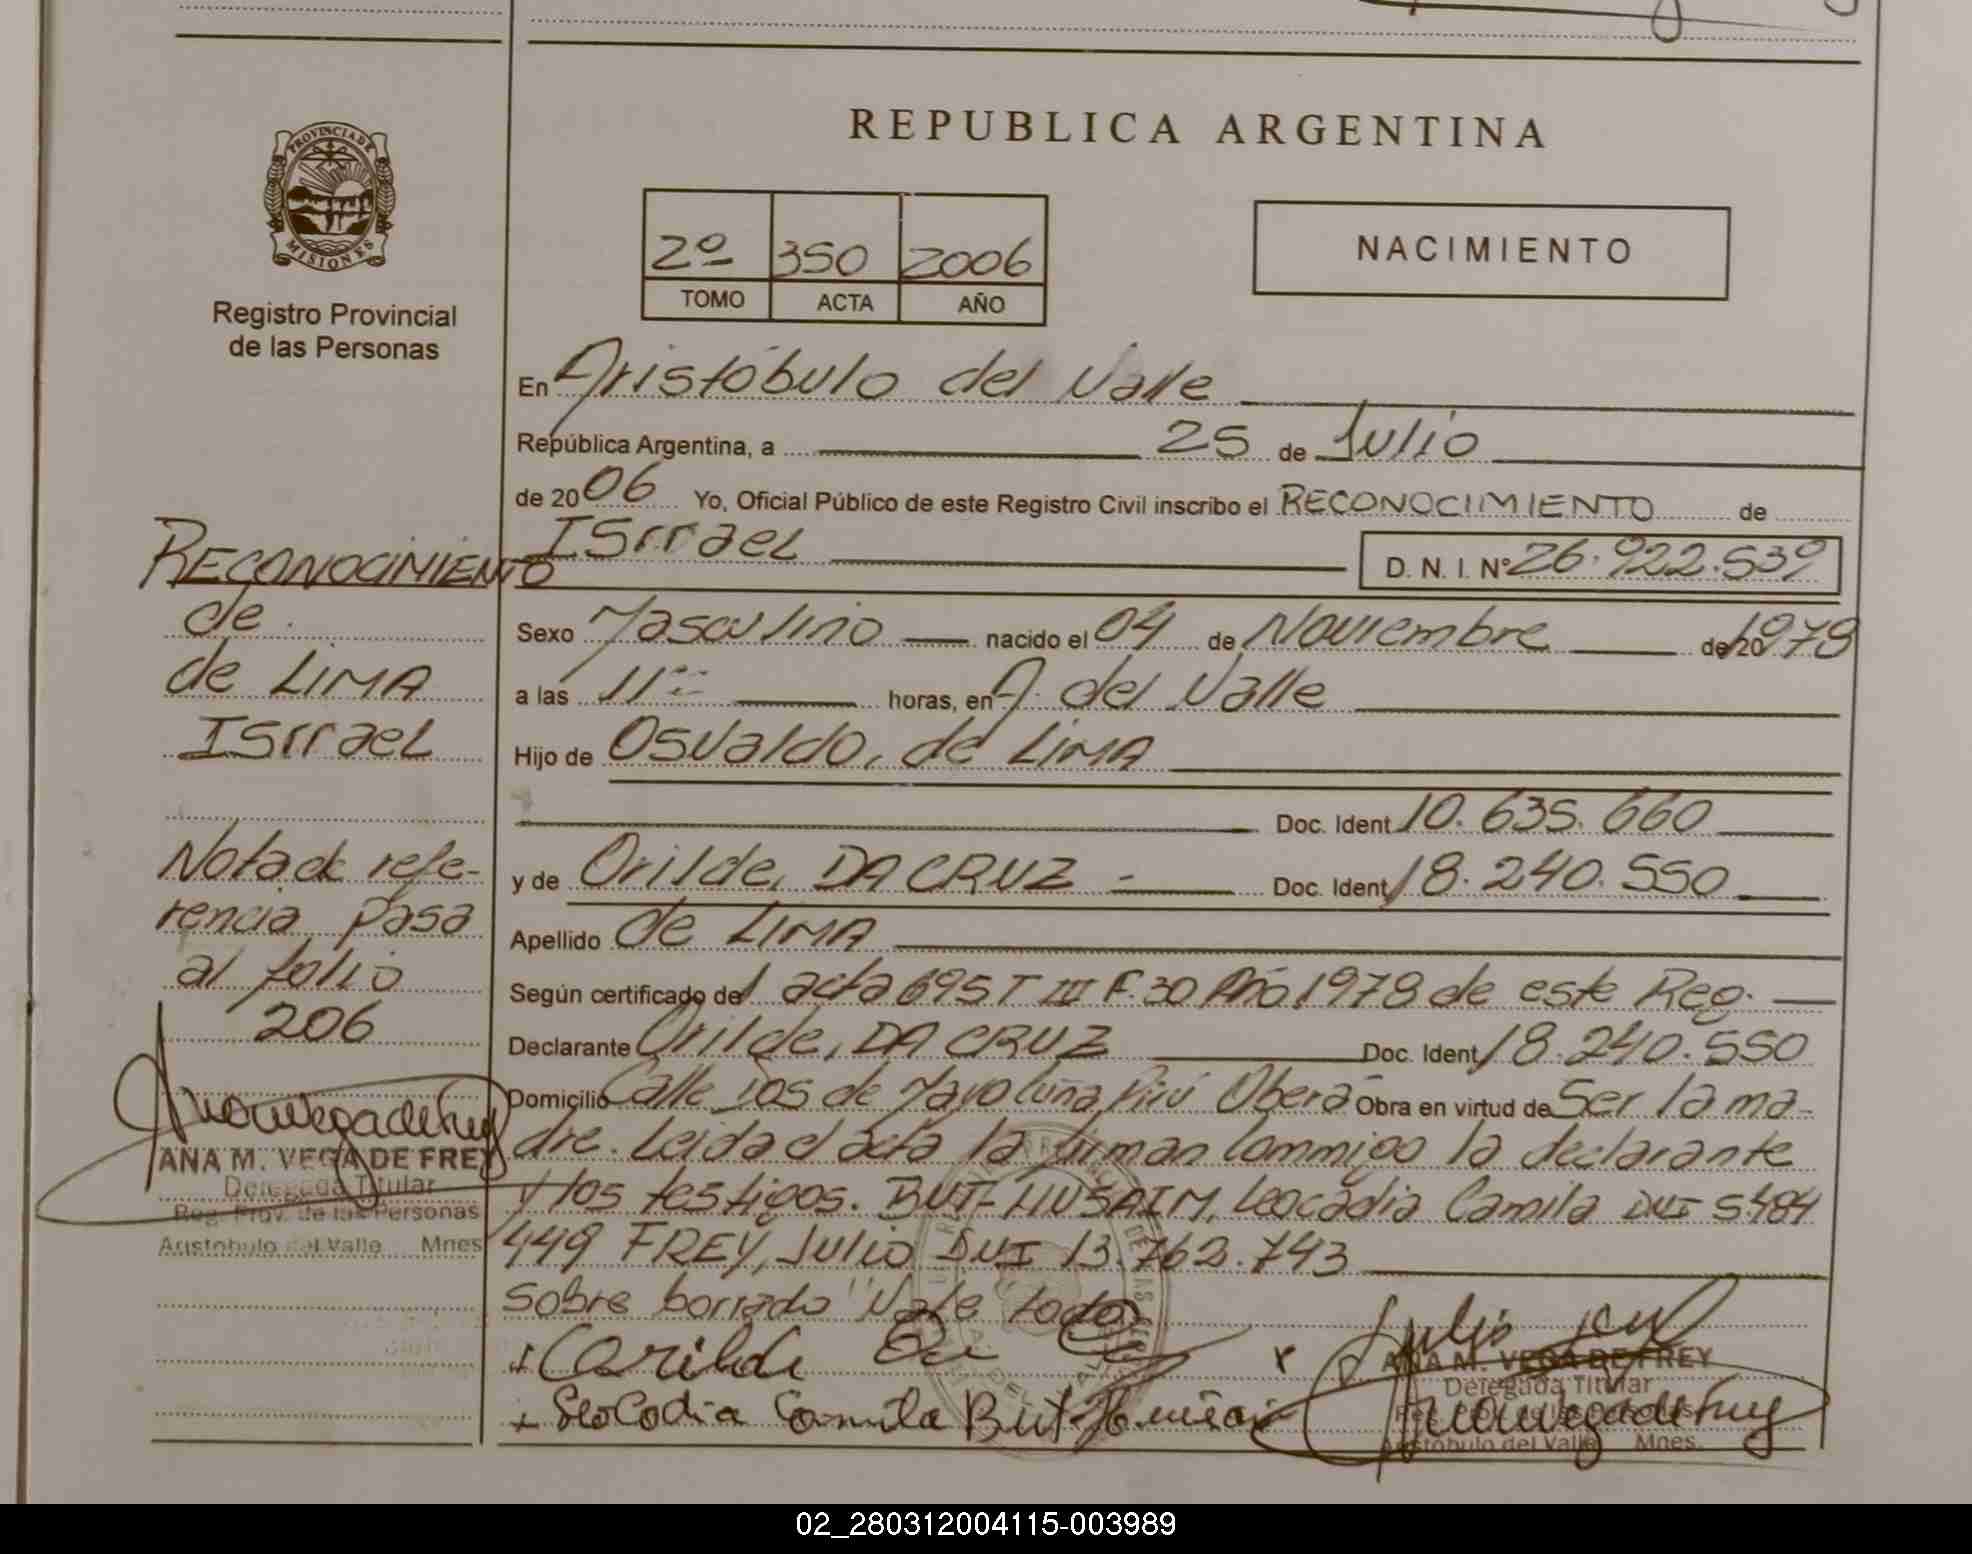 REPUBLICA ARGENTINA
PROVINCIA DE MISIONES
Registro Provincial
de las Personas
2º 350 2006
TOMO ACTA AÑO
NACIMIENTO
En Aristóbulo del Valle
República Argentina, a 25 de Julio
de 2006 Yo, Oficial Público de este Registro Civil inscribo el RECONOCIMIENTO de
ISrrael D. N. I. Nº 26.922.539
Sexo Masculino nacido el 04 de Noviembre de 20 1978
a las 11 horas, en A. del Valle
Hijo de Osvaldo, de LIMA
Doc. Ident 10.635.660
y de Orilde, DA CRUZ Doc. Ident 18.240.550
Apellido de LIMA
Según certificado del acta 695 T III F. 30 Año 1978 de este Reg.
Declarante Orilde, DA CRUZ Doc. Ident 18.240.550
Domicilio Calle Dos de Mayo Oberá Obra en virtud de Ser la ma-
dre. Leida el acta la firman Conmigo la declarante
y los testigos. BUT-HUSAIM, Leocadia Camila DNI 5.484
449 FREY, Julio DNI 13.762.743
Sobre borrado "Vale todo
RECONOCIMIENTO
de
de LIMA
ISrrael
Nota de refe-
rencia pasa
al folio
206
ANA M. VEGA DE FREY
Delegada Titular
Reg. Prov. de las Personas
Aristóbulo del Valle Mnes
x Leocadia Camila But
ANA M. VEGA DE FREY
Delegada Titular
Aristóbulo del Valle Mnes.
02_280312004115-003989